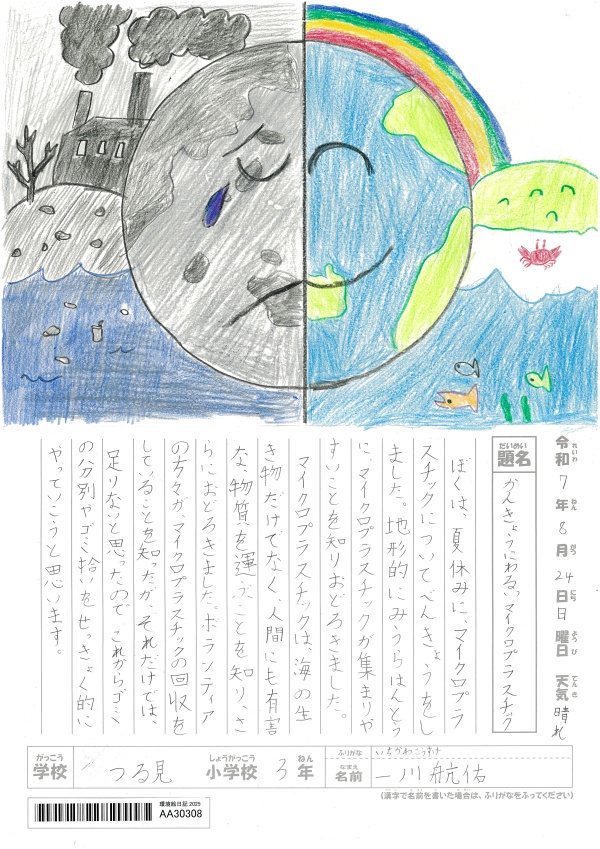 令和7年8月24日日曜日 天気 晴れ
れいわ ねん がつ にち ようび てんき
だいめい
題名 かんきょうにわるいマイクロプラスチック
ぼくは、夏休みに、マイクロプラ
スチックについてべんきょうをし
ました。地形的にみうらはんとう
に、マイクロプラスチックが集まりや
すいことを知りおどろきました。
マイクロプラスチックは、海の生
き物だけでなく、人間にも有害
な物質を運ぶことを知り、さ
らにおどろきました。ボランティア
の方々が、マイクロプラスチックの回収を
していることを知ったが、それだけでは、
足りないと思ったので、これからゴミ
の分別やゴミ拾いをせっきょく的に
やっていこうと思います。
がっこう しょうがっこう ねん
学校 つる見 小学校 3年
ふりがな いちかわこうすけ
なまえ
名前 一川航佑
(漢字で名前を書いた場合は、ふりがなをふってください)
環境絵日記 2025
AA30308